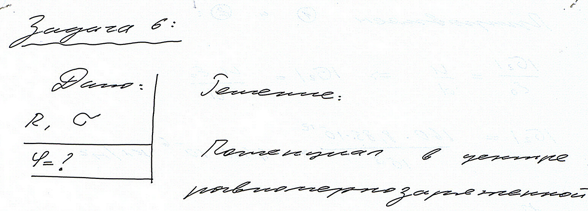 Задача 6:
Дано:
R, σ
φ=?
Решение:
Потенциал в центре
равномерно заряженной